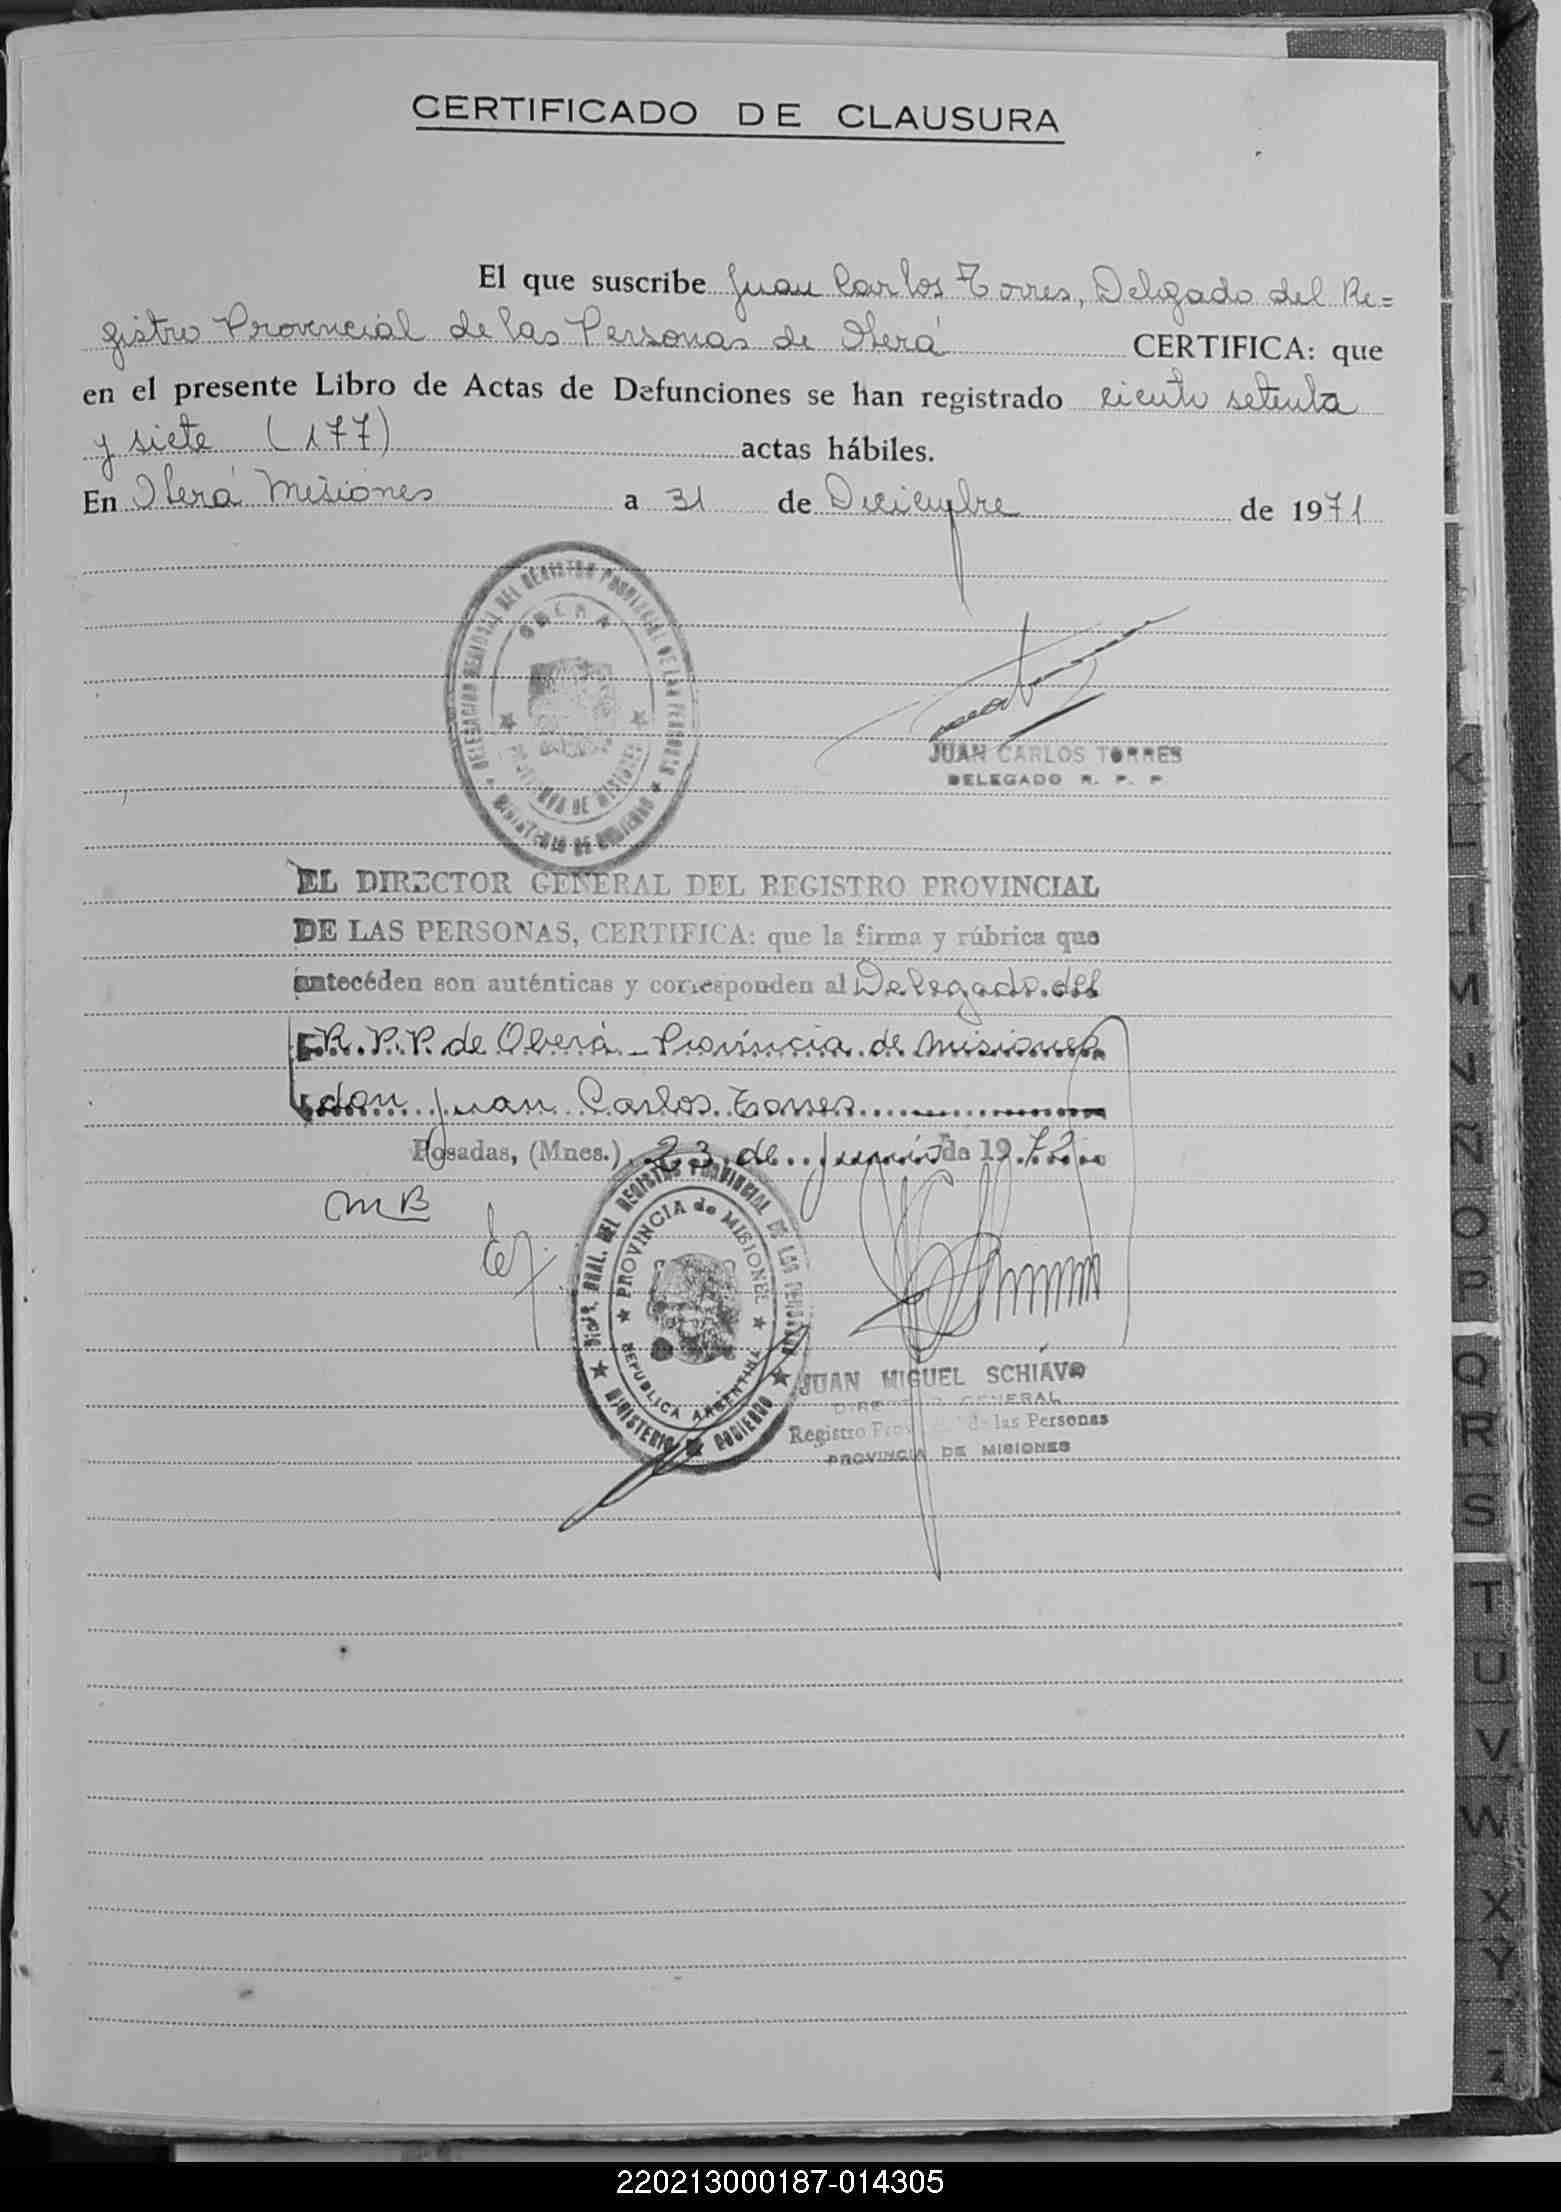 CERTIFICADO DE CLAUSURA
El que suscribe Juan Carlos Torres, Delgado del Re=
gistro Provincial de las Personas de Oberá CERTIFICA: que
en el presente Libro de Actas de Defunciones se han registrado ciento setenta
y siete (177) actas hábiles.
En Oberá Misiones a 31 de Diciembre de 1971
DELEGACION REGIONAL DEL REGISTRO PROVINCIAL DE LAS PERSONAS
OBERA
PROVINCIA DE MISIONES
MINISTERIO DE GOBIERNO
JUAN CARLOS TORRES
DELEGADO R. P. P.
EL DIRECTOR GENERAL DEL REGISTRO PROVINCIAL
DE LAS PERSONAS, CERTIFICA: que la firma y rúbrica que
antecéden son auténticas y corresponden al Delegado del
R.P.P. de Oberá - Provincia de Misiones
don Juan Carlos Torres
Posadas, (Mnes.) 23 de Junio de 1972
MB
DEL REGISTRO PROVINCIAL DE LAS PERSONAS
PROVINCIA de MISIONES
REPUBLICA ARGENTINA
MINISTERIO GOBIERNO
JUAN MIGUEL SCHIAVO
DIRECTOR GENERAL
Registro Provincial de las Personas
PROVINCIA DE MISIONES
K
L
M
N
Ñ
O
P
Q
R
S
T
U
V
W
X
Y
Z
220213000187-014305